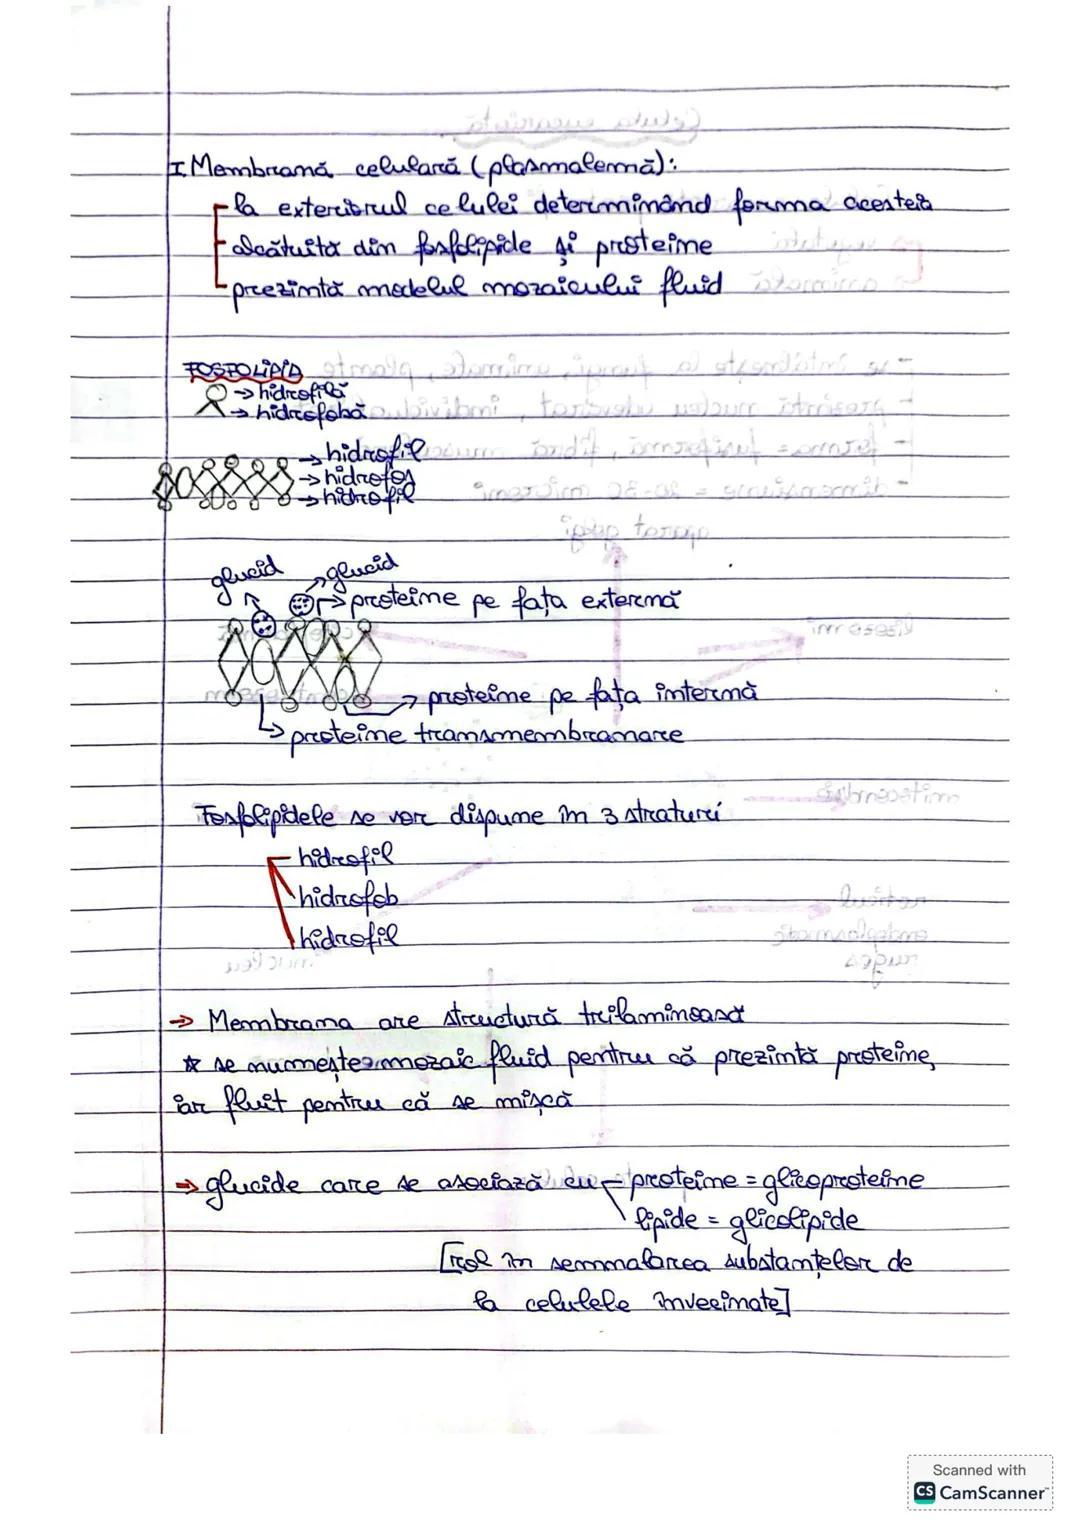 I Membrană celulară (plasmalemă):
- la exteriorul celulei determinând forma acesteia
- alcătuită din fosfolipide și proteine
- prezintă modelul mozaicului fluid
FOSFOLIPID
→ hidrofilă
→ hidrofobă
→ hidrofil
→ hidrofob
→ hidrofil
glucid
glucid
→ proteine pe fața externă
→ proteine pe fața internă
→ proteine transmembranare
Fosfolipidele se vor dispune în 3 straturi
- hidrofil
hidrofob
hidrofil
→ Membrana are structură trilaminoasă
☆ se numește mozaic fluid pentru că prezintă proteine,
iar fluit pentru că se mișcă
→ glucide care se asociază cu - proteine = glicoproteine
\ lipide = glicolipide
[rol în semnalarea substanțelor de
la celulele învecinate]
Scanned with
CS CamScanner